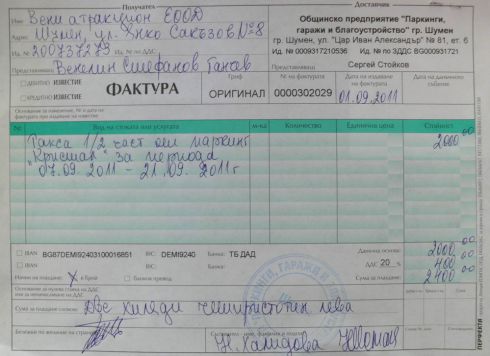 Получател
Доставчик
Име Вени атракцион ЕООД
Адрес Шумен, ул. Хитко Сакъзов №8
Ид. № 200737273 Ид. № по ДДС
Представляващ Венелин Стефанов Ганев
Общинско предприятие "Паркинги,
гаражи и благоустройство" гр. Шумен
гр. Шумен, ул. "Цар Иван Александър" № 81, ет. 6
Ид. № 0009317210536 Ид. № по ЗДДС BG000931721
Представляващ Сергей Стойков
ДЕБИТНО ИЗВЕСТИЕ
КРЕДИТНО ИЗВЕСТИЕ
ФАКТУРА
Гриф
ОРИГИНАЛ
№ на фактурата
0000302029
Дата на издаване на фактурата
01.09.2011
Дата на данъчното събитие
№ Вид на стоката или услугата м-ка Количество Единична цена Стойност
Такса 1/2 част от паркинг 2000,00
"Кристал" за периода
07.09.2011 - 21.09.2011г
IBAN BG87DEMI92403100016851 BIC: DEMI9240 Банка: ТБ ДАД
IBAN BIC: Банка:
Данъчна основа: 2000,00
ДДС 20 % 400,00
Сума за плащане: 2400,00
Начин на плащане: X в брой Банков превод
Сума за плащане словом: Две хиляди четиристотин лева
Съставил
Н. Халидова